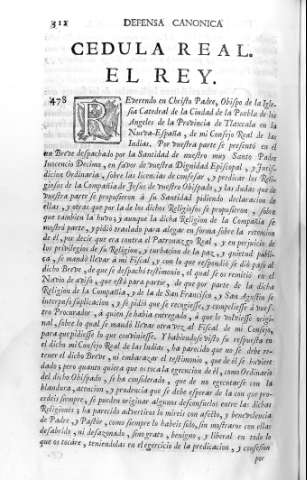 312 DEFENSA CANONICA
CEDULA REAL.
EL REY.
478 REverendo en Christo Padre, Obispo de la Igle-
sia Catedral de la Ciudad de la Puebla de los
Angeles de la Provincia de Tlaxcala en la
Nueva-España, de mi Consejo Real de las
Indias. Por vuestra parte se presentò en el
un Breve despachado por la Santidad de nuestro muy Santo Padre
Inocencio Decimo, en favor de vuestra Dignidad Episcopal, y Juris-
dicion Ordinaria, sobre las licencias de confesar, y predicar los Reli-
giosos de la Compañia de Jesus de vuestro Obispado, y las dudas que de
vuestra parte se propusieron à su Santidad pidiendo declaracion de
ellas, y otras que por la de los dichos Religiosos se propusieron, sobre
que tambien la huvo; y aunque da dicha Religion de la Compañia se
mostrò parte, y pidiò traslado para alegar en forma sobre la retencion
de èl, por decir que era contra el Patronazgo Real, y en perjuicio de
los privilegios de su Religion, y turbacion de la paz, y quietud publi-
ca, se mandò llevar à mi Fiscal, y con lo que respondiò se diò paso al
dicho Breve, de que se despachò testimonio, el qual os os remitiò en el
Navio de aviso, que està para partir, de que por parte de la dicha
Religion de la Compañia, y de la de San Francisco, y San Agustin se
interpuso suplicacion, y se pidiò que se recogiesse, y compeliesse à vues-
tro Procurador, à quien se havia entregado, à que le volviesse origi-
nal, sobre lo qual se mandò llevar otra vez al Fiscal de mi Consejo,
para que pidiesse lo que conviniesse. Y haviendose visto su respuesta en
el dicho mi Consejo Real de las Indias, ha parecido que no se debe re-
tener el dicho Breve, ni embarazar el testimonio, que de èl se huviere
dado; pero quanto quiera que os toca la egecucion de èl, como Ordinario
del dicho Obispado, se ha considerado, que de no egecutarse con la
blandura, atencion, y prudencia que se debe esperar de la con que pro-
cedeis siempre, se pueden originar algunos desconsuelos entre las dichas
Religiones; ha parecido advertiros lo mireis con afecto, y benevolencia
de Padre, y Pastor, como siempre lo habeis sido, sin mostraros con ellas
desabrido, ni desazonado, sino grato, benigno, y liberal en todo lo
que os tocáre, teniendolas en el egercicio de la predicacion, y confesion
por